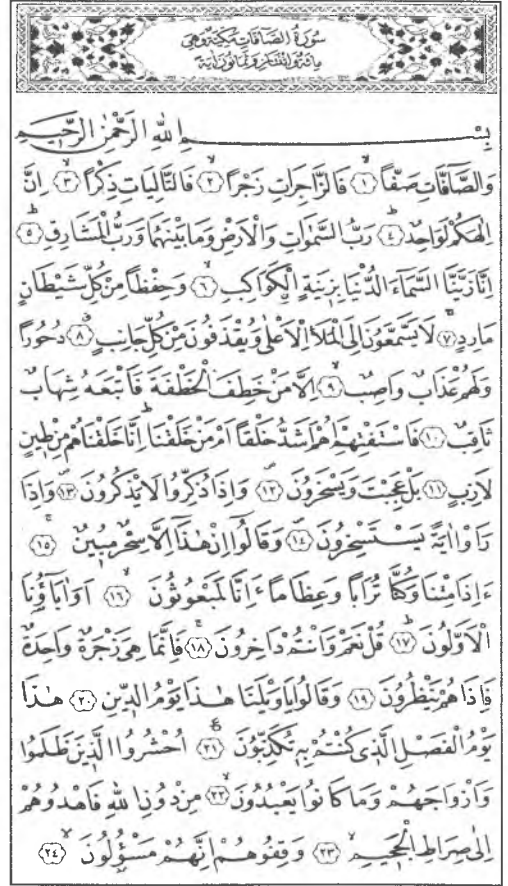 سُورَةُ الصَّافَّاتِ مَكِّيَّةٌ وَهِيَ
مِائَةٌ وَاثْنَتَانِ وَثَمَانُونَ اٰيَةً
بِسْمِ اللهِ الرَّحْمٰنِ الرَّحِيمِ
وَالصَّافَّاتِ صَفًّا ﴿١﴾ فَالزَّاجِرَاتِ زَجْرًا ﴿٢﴾ فَالتَّالِيَاتِ ذِكْرًا ﴿٣﴾ اِنَّ
اِلٰهَكُمْ لَوَاحِدٌ ﴿٤﴾ رَبُّ السَّمٰوَاتِ وَالْاَرْضِ وَمَا بَيْنَهُمَا وَرَبُّ الْمَشَارِقِ ﴿٥﴾
اِنَّا زَيَّنَّا السَّمَاءَ الدُّنْيَا بِزِينَةٍ الْكَوَاكِبِ ﴿٦﴾ وَحِفْظًا مِنْ كُلِّ شَيْطَانٍ
مَارِدٍ ﴿٧﴾ لَا يَسَّمَّعُونَ اِلَى الْمَلَاِ الْاَعْلٰى وَيُقْذَفُونَ مِنْ كُلِّ جَانِبٍ ﴿٨﴾ دُحُورًا
وَلَهُمْ عَذَابٌ وَاصِبٌ ﴿٩﴾ اِلَّا مَنْ خَطِفَ الْخَطْفَةَ فَاَتْبَعَهُ شِهَابٌ
ثَاقِبٌ ﴿١٠﴾ فَاسْتَفْتِهِمْ اَهُمْ اَشَدُّ خَلْقًا اَمْ مَنْ خَلَقْنَا اِنَّا خَلَقْنَاهُمْ مِنْ طِينٍ
لَازِبٍ ﴿١١﴾ بَلْ عَجِبْتَ وَيَسْخَرُونَ ﴿١٢﴾ وَاِذَا ذُكِّرُوا لَا يَذْكُرُونَ ﴿١٣﴾ وَاِذَا
رَاَوْا اٰيَةً يَسْتَسْخِرُونَ ﴿١٤﴾ وَقَالُوا اِنْ هٰذَا اِلَّا سِحْرٌ مُبِينٌ ﴿١٥﴾
ءَاِذَا مِتْنَا وَكُنَّا تُرَابًا وَعِظَامًا ءَاِنَّا لَمَبْعُوثُونَ ﴿١٦﴾ اَوَاٰبَاؤُنَا
الْاَوَّلُونَ ﴿١٧﴾ قُلْ نَعَمْ وَاَنْتُمْ دَاخِرُونَ ﴿١٨﴾ فَاِنَّمَا هِيَ زَجْرَةٌ وَاحِدَةٌ
فَاِذَا هُمْ يَنْظُرُونَ ﴿١٩﴾ وَقَالُوا يَاوَيْلَنَا هٰذَا يَوْمُ الدِّينِ ﴿٢٠﴾ هٰذَا
يَوْمُ الْفَصْلِ الَّذِي كُنْتُمْ بِهِ تُكَذِّبُونَ ﴿٢١﴾ اُحْشُرُوا الَّذِينَ ظَلَمُوا
وَاَزْوَاجَهُمْ وَمَا كَانُوا يَعْبُدُونَ ﴿٢٢﴾ مِنْ دُونِ اللهِ فَاهْدُوهُمْ
اِلٰى صِرَاطِ الْجَحِيمِ ﴿٢٣﴾ وَقِفُوهُمْ اِنَّهُمْ مَسْؤُلُونَ ﴿٢٤﴾